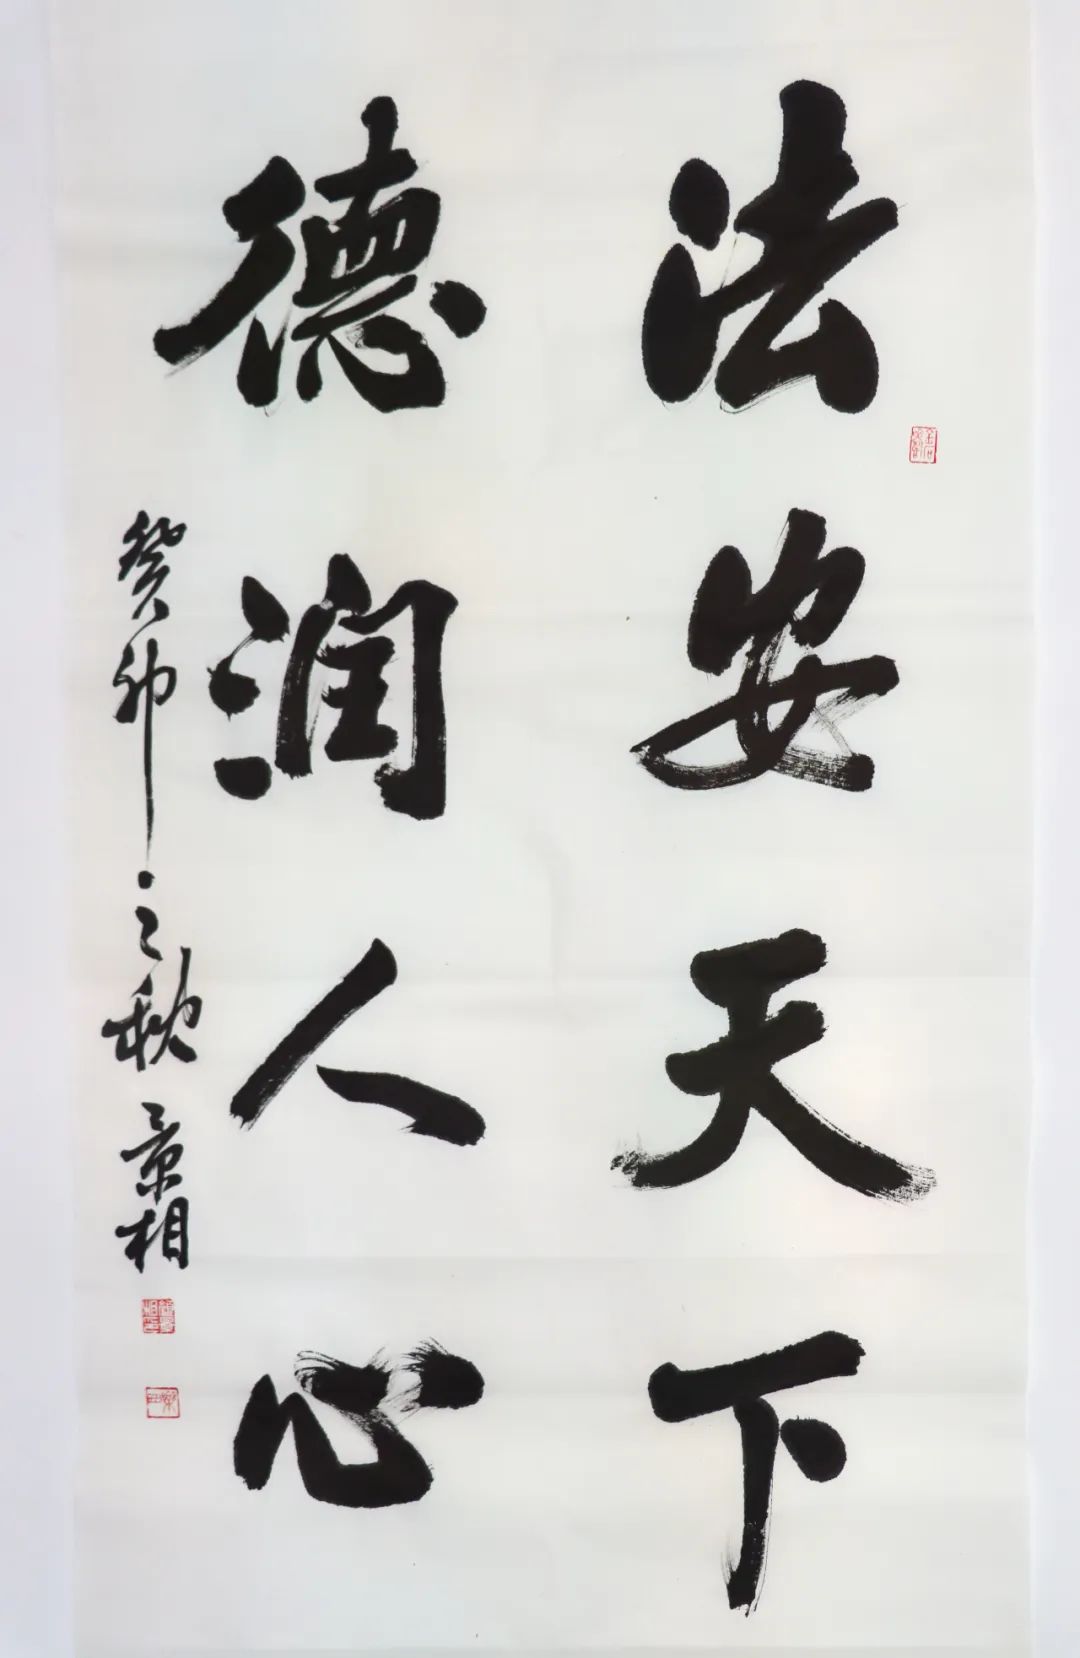 法安天下
德润人心
癸卯之秋 景相